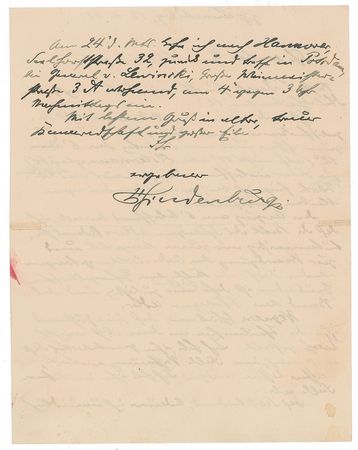 Am 24. d. Mts. gehe ich nach Hannover,
straße 32, zurück und treffe in Potsdam,
bei General v. Lewinski, Große Weinmeister-
straße 3 A wohnend, am 4. gegen 3 Uhr
Nachmittags ein.
Mit bestem Gruß in alter, treuer
Kameradschaft und großer Eile
Ihr
ergebener
Hindenburg.